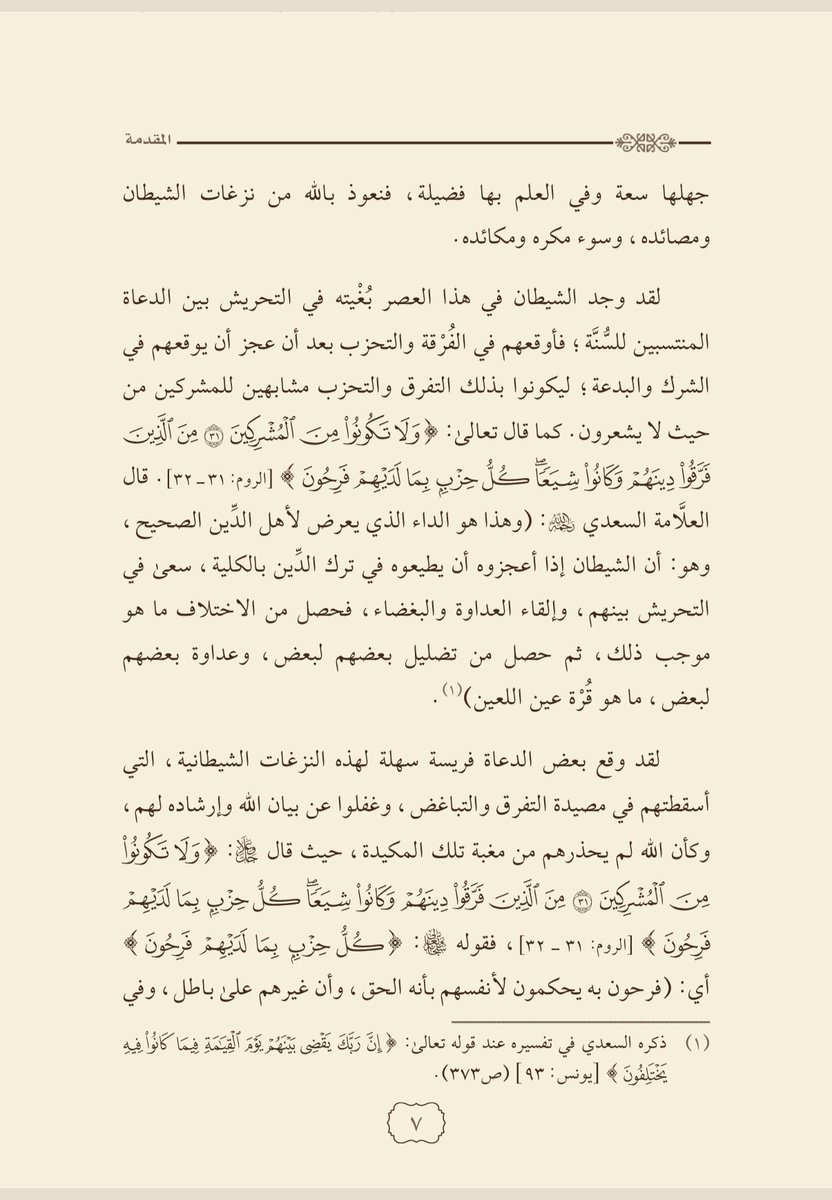 المقدمة
جهلها سعة وفي العلم بها فضيلة، فنعوذ بالله من نزغات الشيطان
ومصائده، وسوء مكره ومكائده.
لقد وجد الشيطان في هذا العصر بُغْيته في التحريش بين الدعاة
المنتسبين للسُّنَّة؛ فأوقعهم في الفُرْقة والتحزب بعد أن عجز أن يوقعهم في
الشرك والبدعة؛ ليكونوا بذلك التفرق والتحزب مشابهين للمشركين من
حيث لا يشعرون. كما قال تعالىٰ: ﴿وَلَا تَكُونُواْ مِنَ ٱلْمُشْرِكِينَ ۝٣١ مِنَ ٱلَّذِينَ
فَرَّقُواْ دِينَهُمْ وَكَانُواْ شِيَعًاۖ كُلُّ حِزْبٍۭ بِمَا لَدَيْهِمْ فَرِحُونَ﴾ [الروم: ٣١ ـ ٣٢]. قال
العلَّامة السعدي رَحِمَهُ اللَّهُ: (وهذا هو الداء الذي يعرض لأهل الدِّين الصحيح،
وهو: أن الشيطان إذا أعجزوه أن يطيعوه في ترك الدِّين بالكلية، سعىٰ في
التحريش بينهم، وإلقاء العداوة والبغضاء، فحصل من الاختلاف ما هو
موجب ذلك، ثم حصل من تضليل بعضهم لبعض، وعداوة بعضهم
لبعض، ما هو قُرْة عين اللعين)(١).
لقد وقع بعض الدعاة فريسة سهلة لهذه النزغات الشيطانية، التي
أسقطتهم في مصيدة التفرق والتباغض، وغفلوا عن بيان الله وإرشاده لهم،
وكأن الله لم يحذرهم من مغبة تلك المكيدة، حيث قال: ﴿وَلَا تَكُونُواْ
مِنَ ٱلْمُشْرِكِينَ ۝٣١ مِنَ ٱلَّذِينَ فَرَّقُواْ دِينَهُمْ وَكَانُواْ شِيَعًاۖ كُلُّ حِزْبٍۭ بِمَا لَدَيْهِمْ
فَرِحُونَ﴾ [الروم: ٣١ ـ ٣٢]، فقوله: ﴿كُلُّ حِزْبٍۭ بِمَا لَدَيْهِمْ فَرِحُونَ﴾
أي: (فرحون به يحكمون لأنفسهم بأنه الحق، وأن غيرهم علىٰ باطل، وفي
(١) ذكره السعدي في تفسيره عند قوله تعالىٰ: ﴿إِنَّ رَبَّكَ يَقْضِى بَيْنَهُمْ يَوْمَ ٱلْقِيَٰمَةِ فِيمَا كَانُواْ فِيهِ
يَخْتَلِفُونَ﴾ [يونس: ٩٣] (ص٣٧٣).
٧